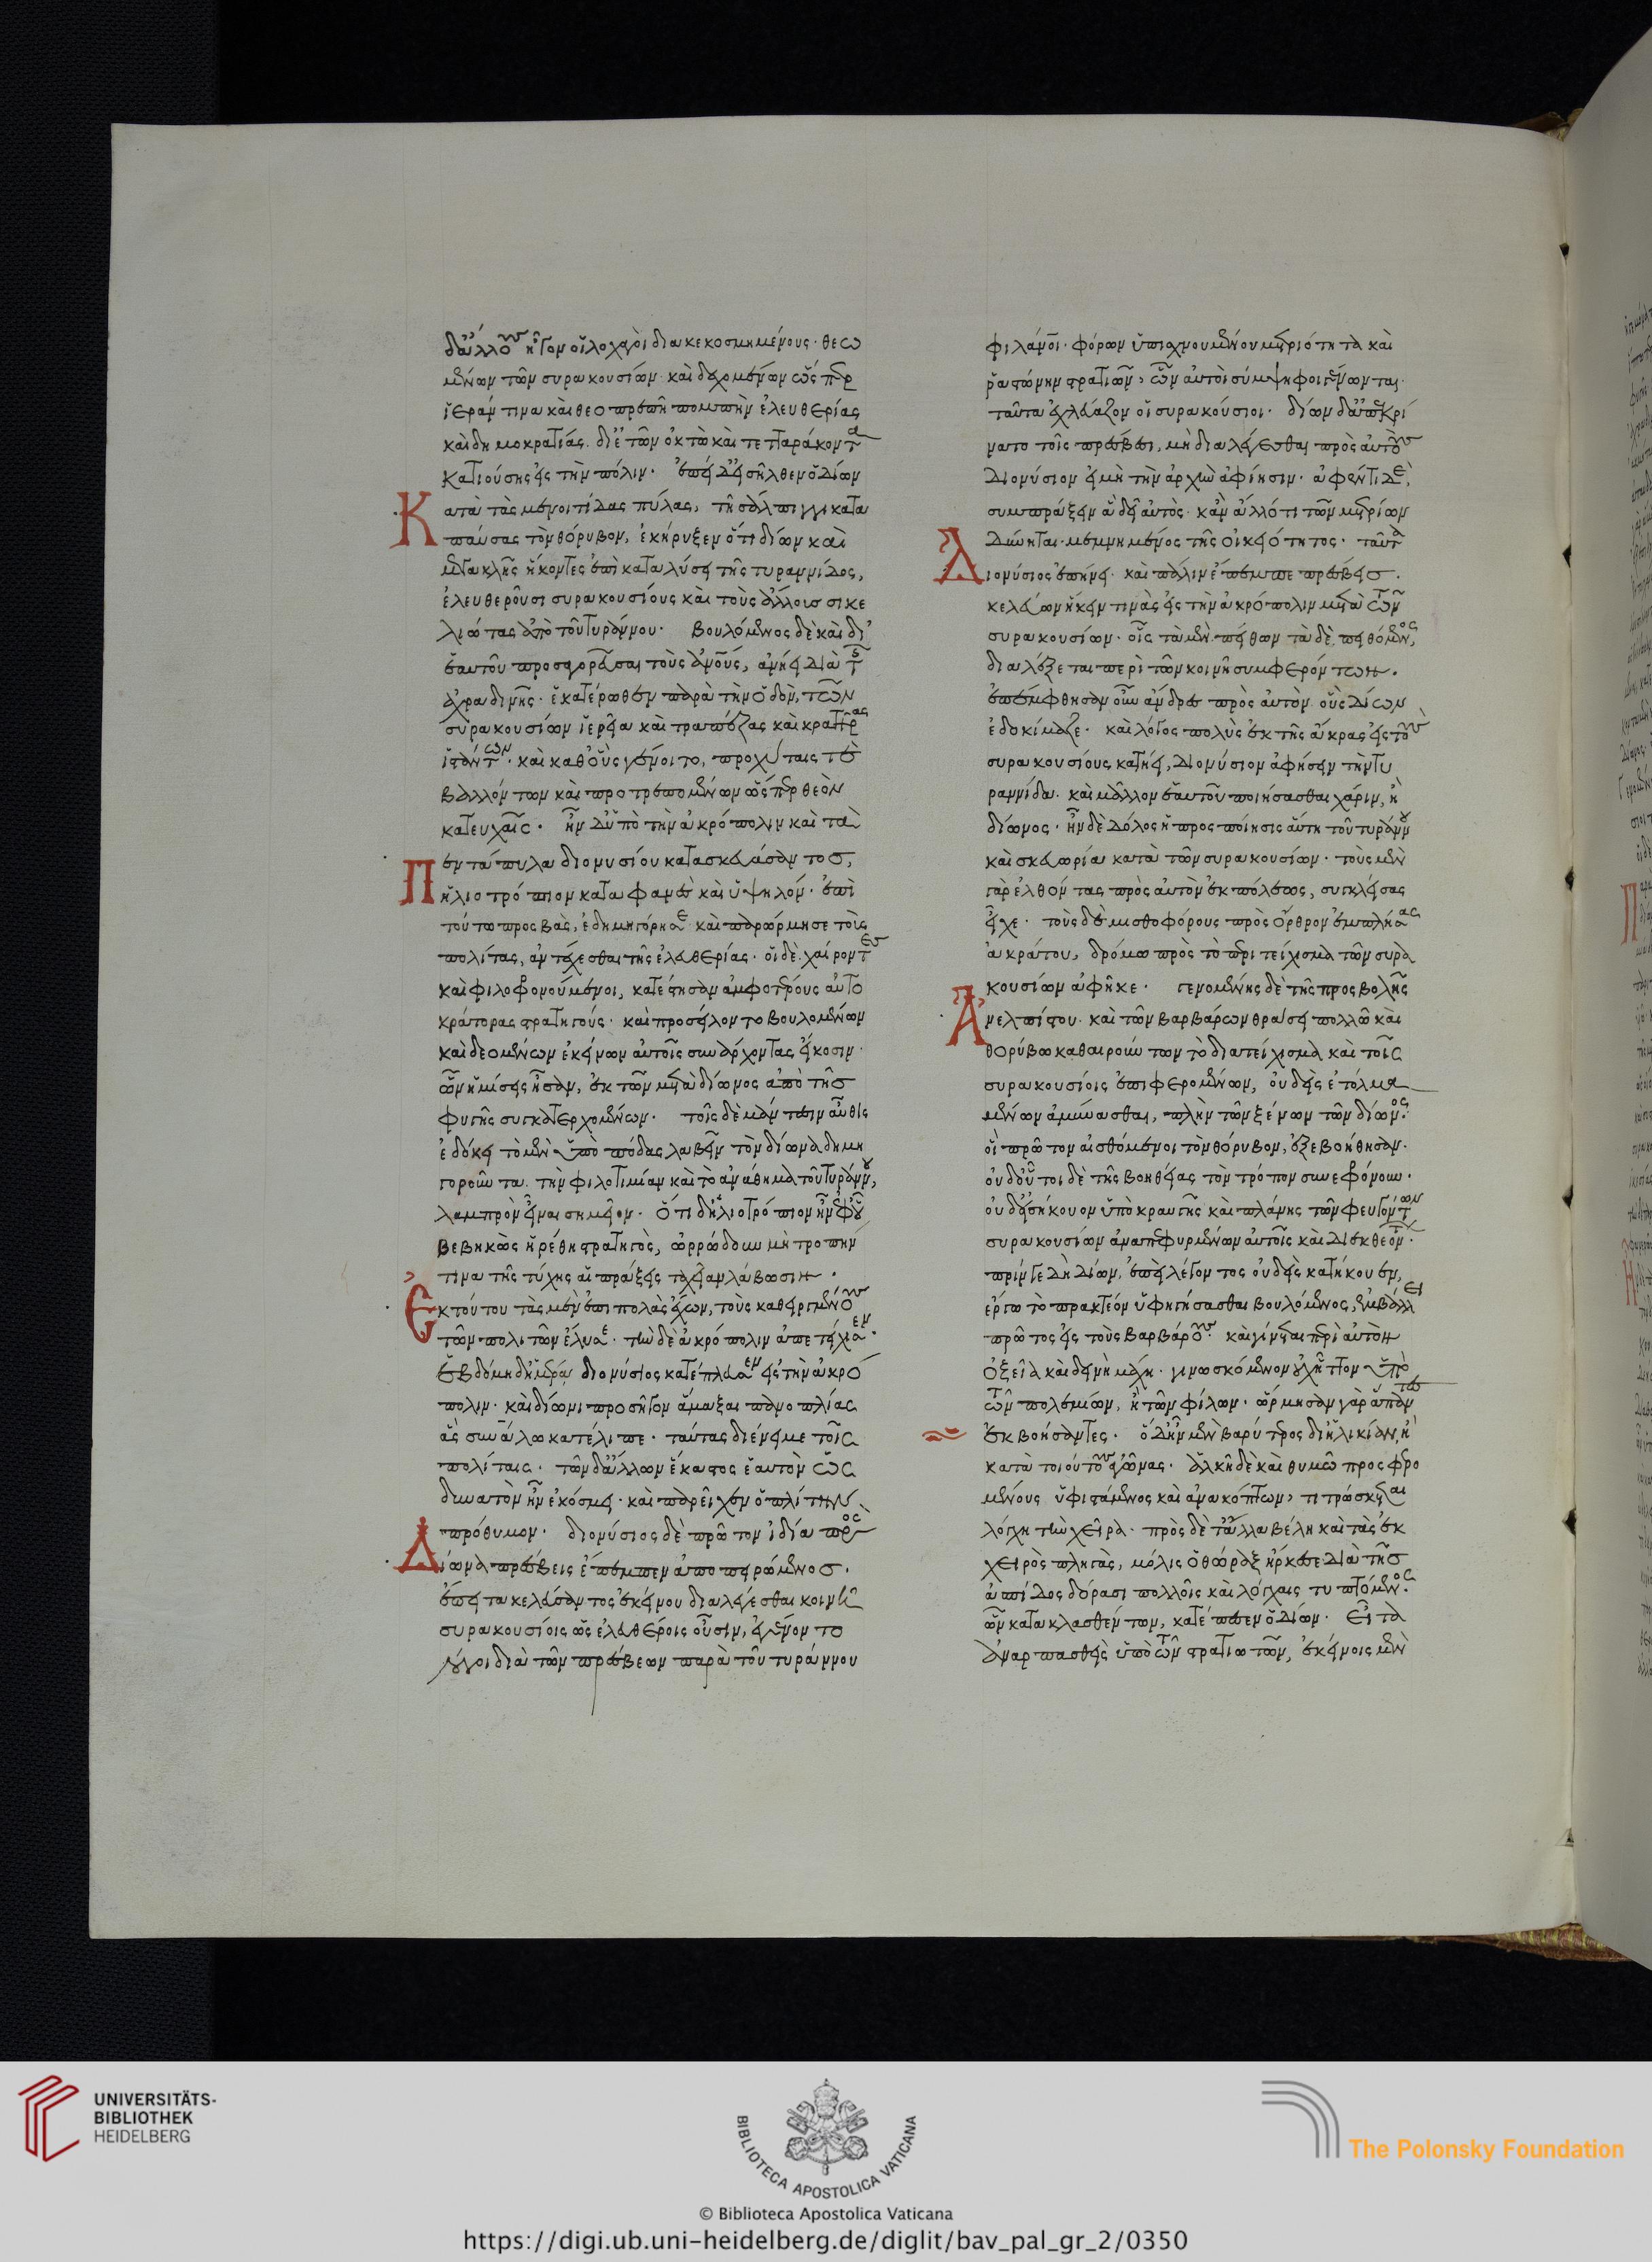 δ' ἄλλους ἦγον οἱ λοχαγοὶ διακεκοσμημένους· θεω
μένων τῶν συρακουσίων καὶ δεχομένων ὥσπερ
ἱεράν τινα καὶ θεοπρεπῆ πομπὴν ἐλευθερίας
καὶ δημοκρατίας. δι' ἐτῶν ὀκτὼ καὶ τετταράκοντα
κατιούσης εἰς τὴν πόλιν· ἐπεὶ δ' εἰσῆλθεν ὁ δίων
Κατὰ τὰς μενοιτίδας πύλας, τῆ σάλπιγγι κατα
παύσας τὸν θόρυβον, ἐκήρυξεν ὅτι δίων καὶ
μεγακλῆς ἥκοντες ἐπὶ καταλύσει τῆς τυραννίδος,
ἐλευθεροῦσι συρακουσίους καὶ τοὺς ἄλλους σικε
λιώτας ἀπὸ τοῦ τυράννου· βουλόμενος δὲ καὶ δι'
ἑαυτοῦ προσαγορεῦσαι τοὺς ἀνθρώπους, ἀνήει διὰ τῆς
ἀχραδινῆς· ἑκατέρωθεν παρὰ τὴν ὁδὸν, τῶν
συρακουσίων ἱερεῖα καὶ τραπέζας καὶ κρατῆρας
ἱστάντων· καὶ καθ' οὓς γένοιτο, προχύταις τε
βαλλόντων καὶ προτρεπομένων ὥσπερ θεὸν
κατευχαῖς· ἦν δ' ὑπὸ τὴν ἀκρόπολιν καὶ τὰ
Πεντάπυλα διονυσίου κατασκευάσαντος,
ἡλιοτρόπιον καταφανὲς καὶ ὑψηλόν· ἐπὶ
τούτω προσβὰς, ἐδημηγόρησε καὶ παρώρμησε τοὺς
πολίτας, ἀντέχεσθαι τῆς ἐλευθερίας· οἱ δὲ χαίροντες
καὶ φιλοφρονούμενοι, κατέστησαν ἀμφοτέρους αὐτο
κράτορας στρατηγούς· καὶ προσείλοντο βουλομένων
καὶ δεομένων ἐκείνων αὐτοῖς συνάρχοντας εἴκοσιν·
ὧν ἡμίσεις ἦσαν, ἐκ τῶν μετὰ δίωνος ἀπὸ τῆς
φυγῆς συγκατερχομένων· τοῖς δὲ μάντεσιν αὖθις
ἐδόκει τὸ μὲν ὑπὸ πόδας λαβεῖν τὸν δίωνα δημη
γοροῦντα τὴν φιλοτιμίαν καὶ τὸ ἀνάθημα τοῦ τυράννου,
λαμπρὸν εἶναι σημεῖον· ὅτι δ' ἡλιοτρόπιον ἦν ἐφ' οὗ
βεβηκὼς ἡρέθη στρατηγὸς, ὠρρώδουν μὴ τροπήν
τινα τῆς τύχης αἱ πράξεις ταχεῖαν λάβωσιν·
Ἐκ τούτου τὰς μὲν ἐπιπολὰς ἑλὼν, τοὺς καθειργμένους
τῶν πολιτῶν ἔλυσε· τὴν δὲ ἀκρόπολιν ἀπετείχισεν·
ἑβδόμη δ' ἡμέρα διονύσιος κατέπλευσεν εἰς τὴν ἀκρό
πολιν· καὶ δίωνι προσῆγον ἅμαξαι πανοπλίας
ἃς συνάλω κατέλιπε· ταύτας διένειμε τοῖς
πολίταις· τῶν δ' ἄλλων ἕκαστος ἑαυτὸν ὡς
δυνατὸν ἦν ἐκόσμει· καὶ παρεῖχεν ὁπλίτην
πρόθυμον· διονύσιος δὲ πρῶτον ἰδία πρὸς
Δίωνα πρέσβεις ἔπεμπεν ἀποπειρώμενος·
ἔπειτα κελεύσαντος ἐκείνου διαλέγεσθαι κοινῆ
συρακουσίοις ὡς ἐλευθέροις οὖσιν, ἐγένοντο
λόγοι διὰ τῶν πρέσβεων παρὰ τοῦ τυράννου
φιλάνθρωποι· φόρων ὑπισχνουμένου μετριότητα καὶ
ῥαστώνην στρατιῶν, ὧν αὐτοὶ σύμψηφοι γένωνται·
ταῦτα ἐχλεύαζον οἱ συρακούσιοι· δίων δ' ἀπεκρί
νατο τοῖς πρέσβεσι, μὴ διαλέγεσθαι πρὸς αὐτοὺς
διονύσιον εἰ μὴ τὴν ἀρχὴν ἀφίησιν· ἀφέντι δὲ,
συμπράξειν ἄδειαν αὐτὸς κἂν ἄλλό τι τῶν μετρίων
δύνηται· μεμνημένος τῆς οἰκειότητος· ταῦτα
Διονύσιος ἐπήνει· καὶ πάλιν ἔπεμπε πρέσβεις·
κελεύων ἥκειν τινὰς εἰς τὴν ἀκρόπολιν μετὰ τῶν
συρακουσίων· οἷς τὰ μὲν πείθων τὰ δὲ πειθόμενος,
διαλέξεται περὶ τῶν κοινῆ συμφερόντων·
ἐπέμφθησαν οὖν ἄνδρες πρὸς αὐτὸν οὓς δίων
ἐδοκίμαζε· καὶ λόγος πολὺς ἐκ τῆς ἄκρας εἰς τοὺς
συρακουσίους κατήει, διονύσιον ἀφήσειν τὴν τυ
ραννίδα· καὶ μᾶλλον ἑαυτοῦ ποιήσασθαι χάριν, ἢ
δίωνος· ἦν δὲ δόλος ἡ προσποίησις αὕτη τοῦ τυράννου
καὶ σκευωρία κατὰ τῶν συρακουσίων· τοὺς μὲν
γὰρ ἐλθόντας πρὸς αὐτὸν ἐκ πόλεως, συγκλείσας
εἶχε· τοὺς δὲ μισθοφόρους πρὸς ὄρθρον ἐμπλήσας
ἀκράτου, δρόμω πρὸς τὸ περιτείχισμα τῶν συρα
κουσίων ἀφῆκε· γενομένης δὲ τῆς προσβολῆς
Ἀνελπίστου· καὶ τῶν βαρβάρων θράσει πολλῶ καὶ
θορύβω καθαιρούντων τὸ διατείχισμα καὶ τοῖς
συρακουσίοις ἐπιφερομένων, οὐδεὶς ἐτόλμα
μένων ἀμύνασθαι, πλὴν τῶν ξένων τῶν δίωνος·
οἳ πρῶτον αἰσθόμενοι τὸν θόρυβον, ἐξεβοήθησαν·
οὐδ' οὗτοι δὲ τῆς βοηθείας τὸν τρόπον συνεφρόνουν·
οὐδ' εἰσήκουον ὑπὸ κραυγῆς καὶ πλάνης τῶν φευγόντων
συρακουσίων ἀναπεφυρμένων αὐτοῖς καὶ διεκθεόντων·
πρίν γε δὴ δίων, ἐπεὶ λέγοντος οὐδεὶς κατήκουεν,
ἔργω τὸ πρακτέον ὑφηγήσασθαι βουλόμενος, ἐμβάλλει
πρῶτος εἰς τοὺς βαρβάρους· καὶ γίνεται περὶ αὐτὸν
ὀξεῖα καὶ δεινὴ μάχη· γινωσκόμενον οὐχ ἧττον ὑπὸ
τῶν πολεμίων, ἢ τῶν φίλων· ὥρμησαν γὰρ ἅπαντες
ἐκβοήσαντες· ὁ δ' ἦν μὲν βαρύτερος δι' ἡλικίαν, ἢ
κατὰ τοιούτους ἀγῶνας· ἀλκῆ δὲ καὶ θυμῶ προσφερο
μένους ὑφιστάμενος καὶ ἀνακόπτων, τιτρώσκεται
λόγχη τὴν χεῖρα· πρὸς δὲ τἆλλα βέλη καὶ τὰς ἐκ
χειρὸς πληγὰς, μόλις ὁ θώραξ ἤρκεσε διὰ τῆς
ἀσπίδος δόρασι πολλοῖς καὶ λόγχαις τυπτόμενος·
ὧν κατακλασθέντων, κατέπεσεν ὁ δίων· εἶτα
ἀναρπασθεὶς ὑπὸ τῶν στρατιωτῶν, ἐκείνοις μὲν
UNIVERSITÄTS-
BIBLIOTHEK
HEIDELBERG
BIBLIOTECA APOSTOLICA VATICANA
The Polonsky Foundation
© Biblioteca Apostolica Vaticana
https://digi.ub.uni-heidelberg.de/diglit/bav_pal_gr_2/0350